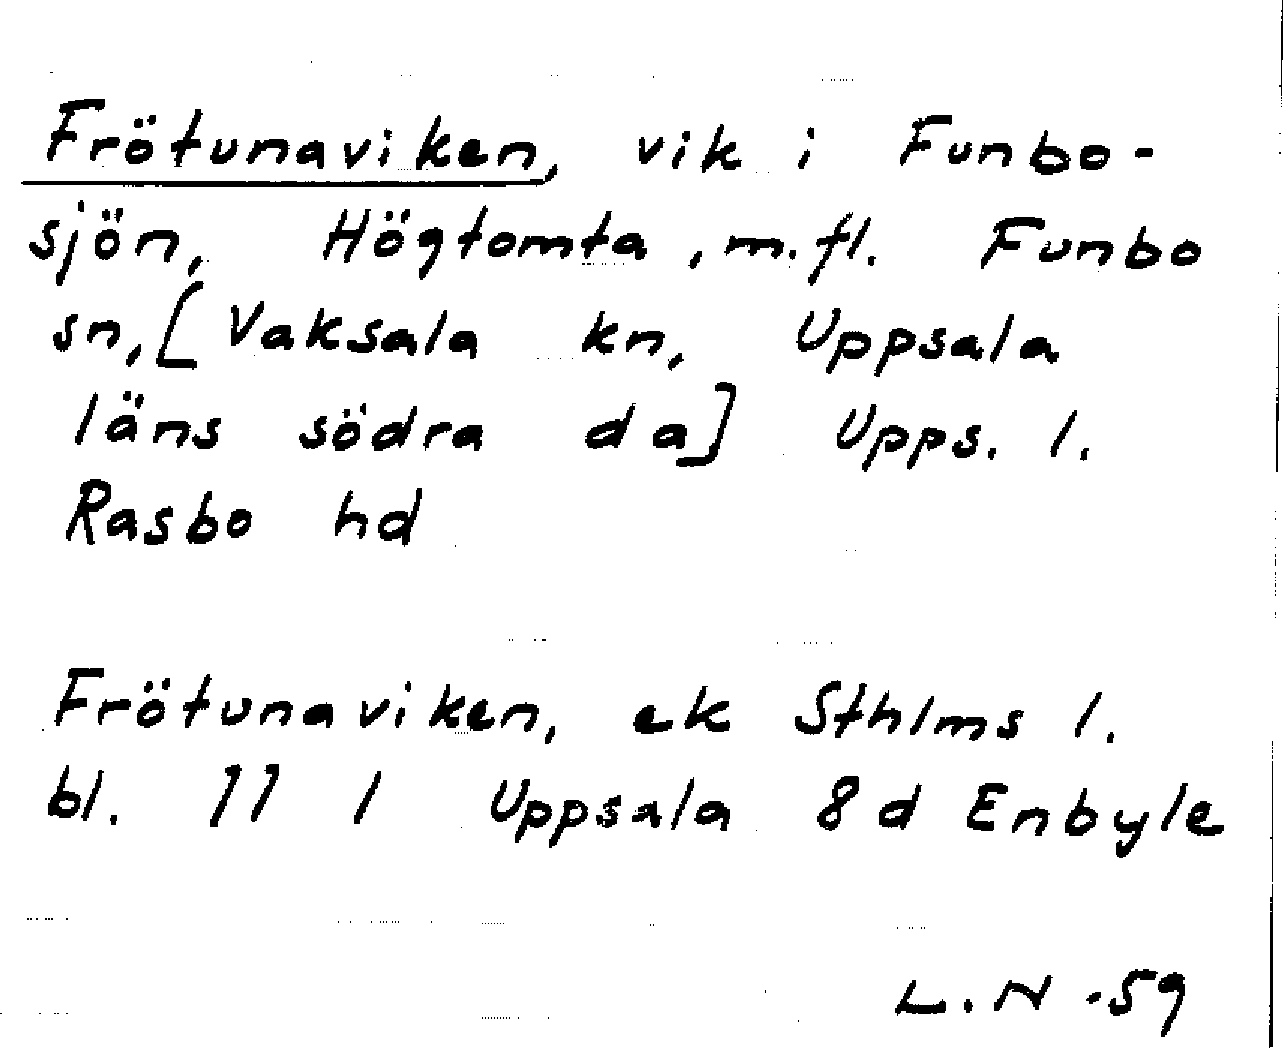 Frötunaviken, vik i Funbo-
sjön, Högtomta, m.fl. Funbo
sn, [Vaksala kn, Uppsala
läns södra da] Upps. l.
Rasbo hd
Frötunaviken, ek Sthlms l.
bl. 11 I Uppsala 8d Enbyle
L.N -59